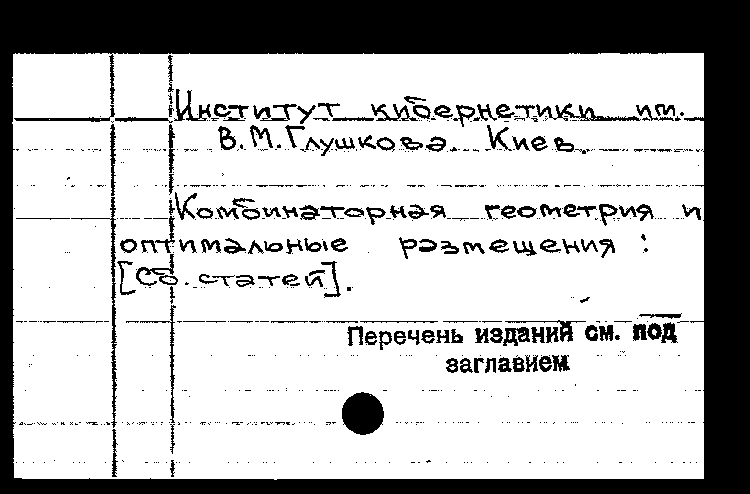 Институт кибернетики им.
В.М.Глушкова. Киев.
Комбинаторная геометрия и
оптимальные размещения :
[Сб. статей].
Перечень изданий см. под
заглавием